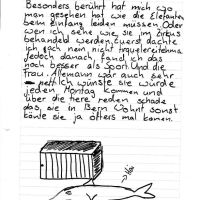 Besonders berührt hat mich wo
man gesehen hat wie die Elefanten
beim Einfang leiden müssen. Oder
wen ich sehe wie sie im Zirkus
behandeld werden. Zuerst dachte
ich ach nein nicht
Jedoch danach, fand ich das
noch besser als Sport. Und die
frau. Allemann war auch sehr
nett. Ich wünste sie würde
jeden Montag kommen und
über die tiere reden schade
das, sie in Bern Wohnt sonst
könte sie ja öfters mal komen.